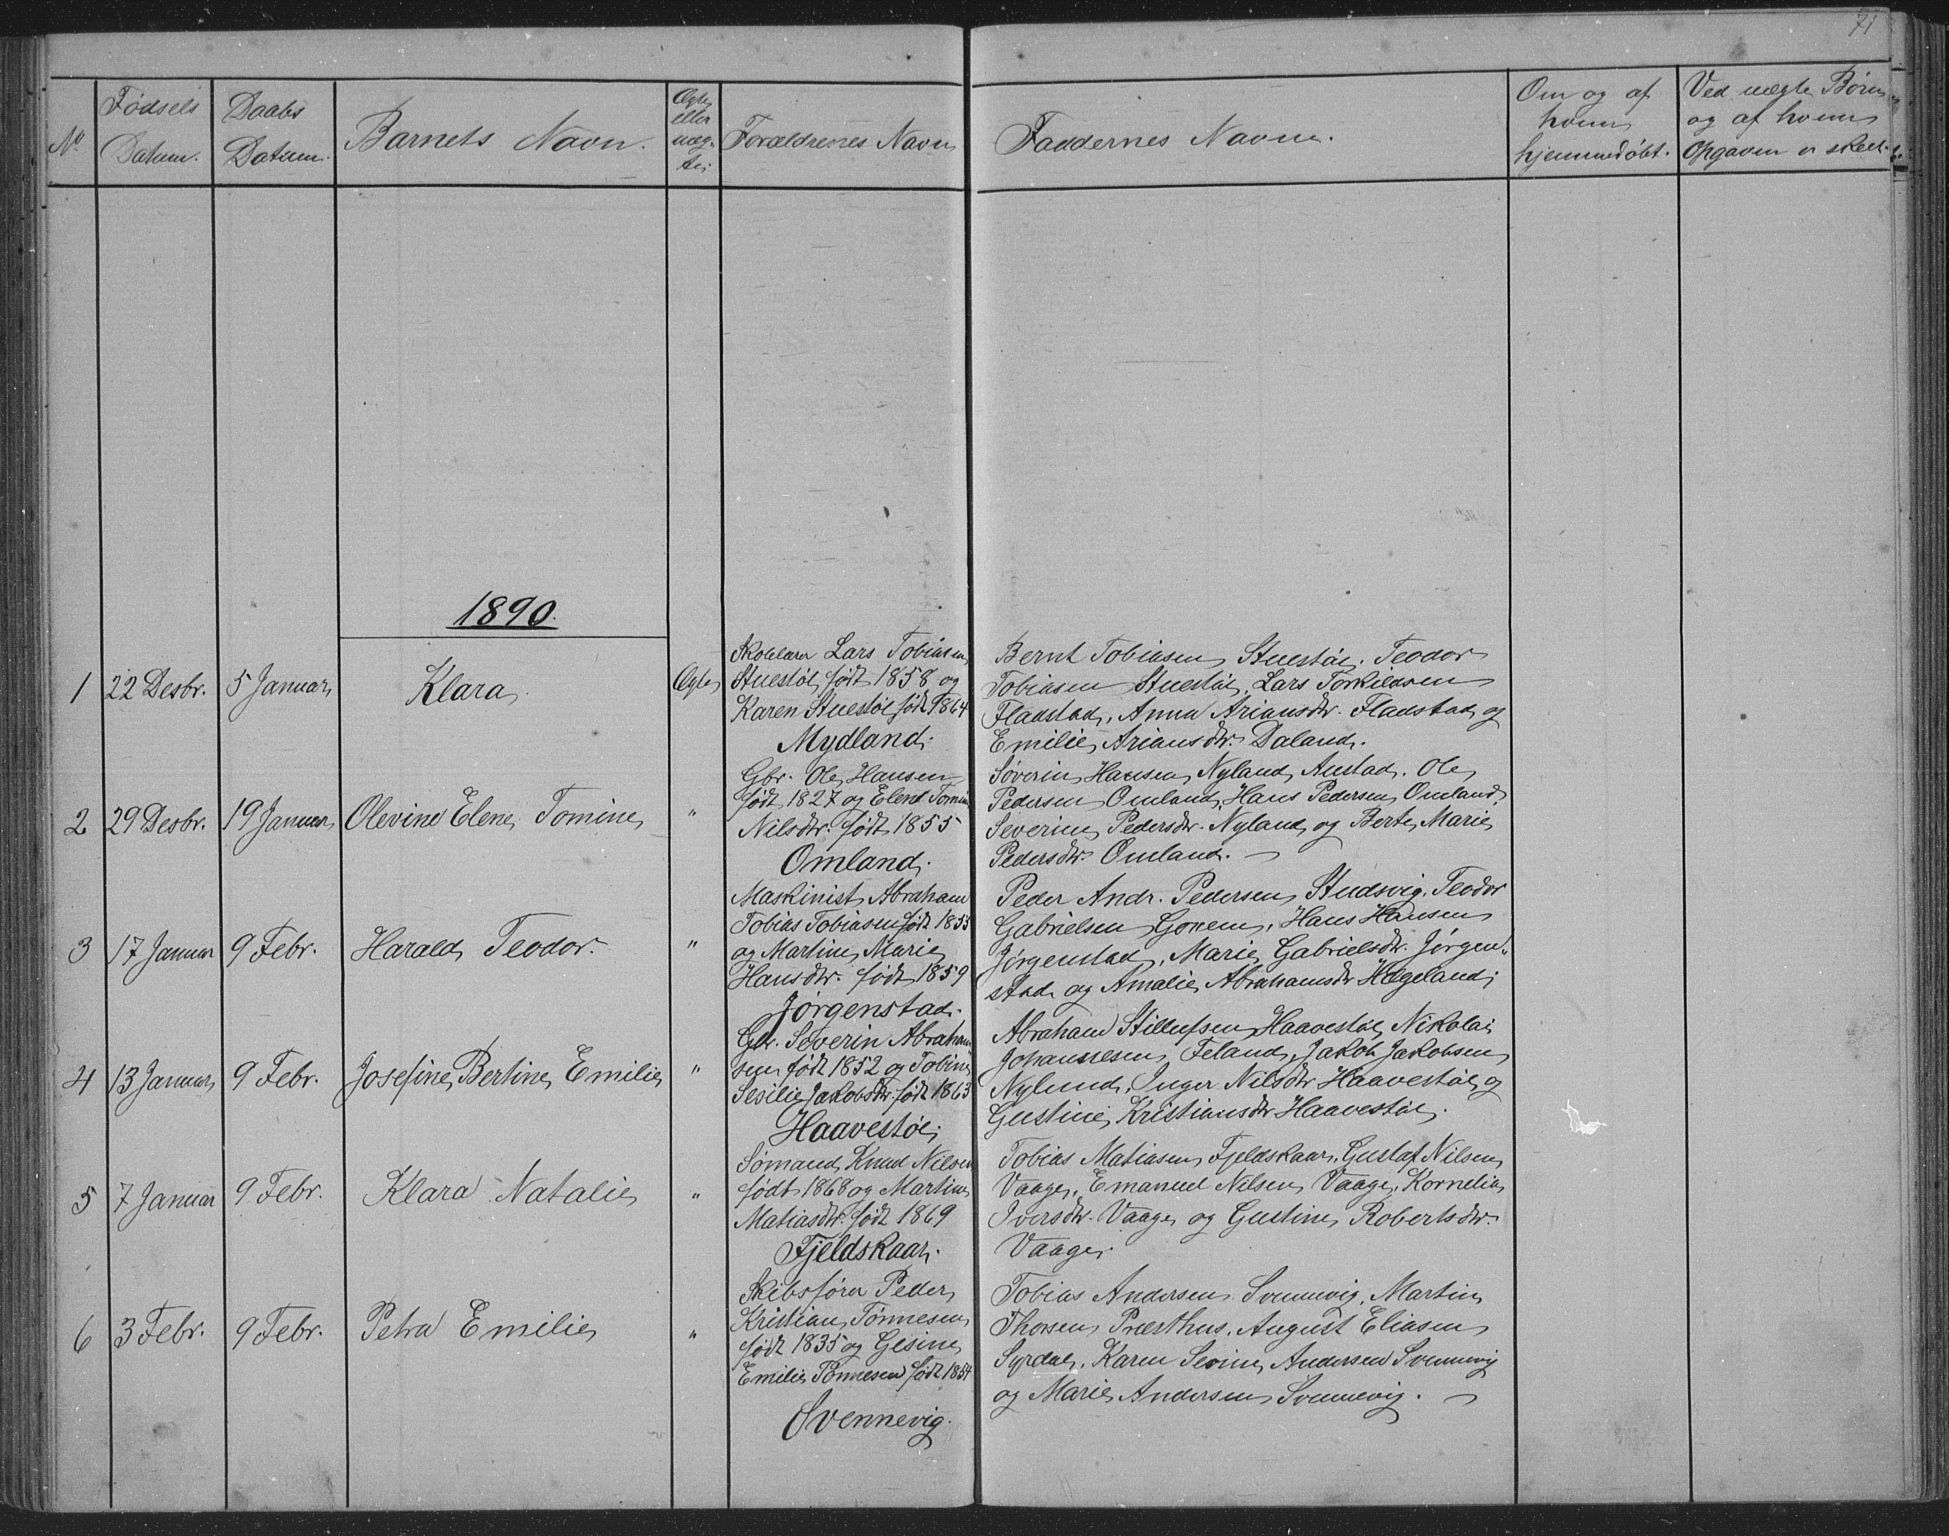 71
No. Fødsels Datum. Daabs Datum. Barnets Navn. Ægte eller uæg- te. Forældrenes Navn Faddernes Navne. Om og af hvem hjemmedøbt. Ved uægte Børn og af hvem Opgaven er skeet.
1890.
1 22 Desbr. 5 Januar Klara Ægte
Skolelærer Lars Tobiasen
Stuestøl, født 1858 og
Karen Stuestøl født 1864
Mydland.
Bernt Tobiasen Stuestøl, Teodor
Tobiasen Stuestøl, Lars Torkildsen
Fladstad, Anna Ariansdtr. Fladstad og
Emilie Ariansdtr. Daland.
2 29 Desbr. 19 Januar Olevine Elene Tomine "
Gbr. Ole Hansen
født 1827 og Elene Tomine
Nilsdtr. født 1855
Omland.
Søverin Hansen Nyland, Austad, Ole
Pedersen Omland, Hans Pedersen Omland,
Severine Pedersdtr. Nyland og Berte Marie
Pedersdtr. Omland. —
3 17 Januar 9 Febr. Harald Teodor. "
Maskinist Abraham
Tobias Tobiasen født 1855
og Martine Marie
Hansdtr. født 1859
Jørgenstad.
Peder Andr. Pedersen Studsvig, Teodor
Gabrielsen Gonem, Hans Hansen
Jørgenstad, Marie Gabrielsdtr. Jørgen-
stad og Amalie Abrahamsdtr Hægeland;
4 13 Januar 9 Febr. Josefine Bertine Emilie "
Gbr. Severin Abraham-
sen født 1852 og Tobine
Sesilie Jakobsdtr. født 1863
Haavestøl;
Abraham Stillufsen Haavestøl, Nikolai
Johannesen Feland, Jakob Jakobsen
Nylund, Inger Nilsdtr Haavestøl og
Gustine Kristiansdtr Haavestøl.
5 7 Januar 9 Febr. Klara Natalie "
Sømand Knud Nilsen
født 1868 og Martine
Matiasdtr. født 1869
Fjeldskaar.
Tobias Matiasen Fjeldskaar, Gustaf Nilsen
Vaage, Emanuel Nilsen Vaage, Kornelia
Iversdtr. Vaage og Gustine Robertsdtr.
Vaage.
6 3 Febr. 9 Febr. Petra Emilie "
Skibsfører Peder
Kristian Tønnesen
født 1835 og Gesine
Emilie Tønnesen født 1854
Svennevig.
Tobias Andersen Svennevig, Martin
Thorsen Præsthus, August Eliasen
Syrdal, Karen Sevine Andersen Svennevig
og Marie Andersen Svennevig. —